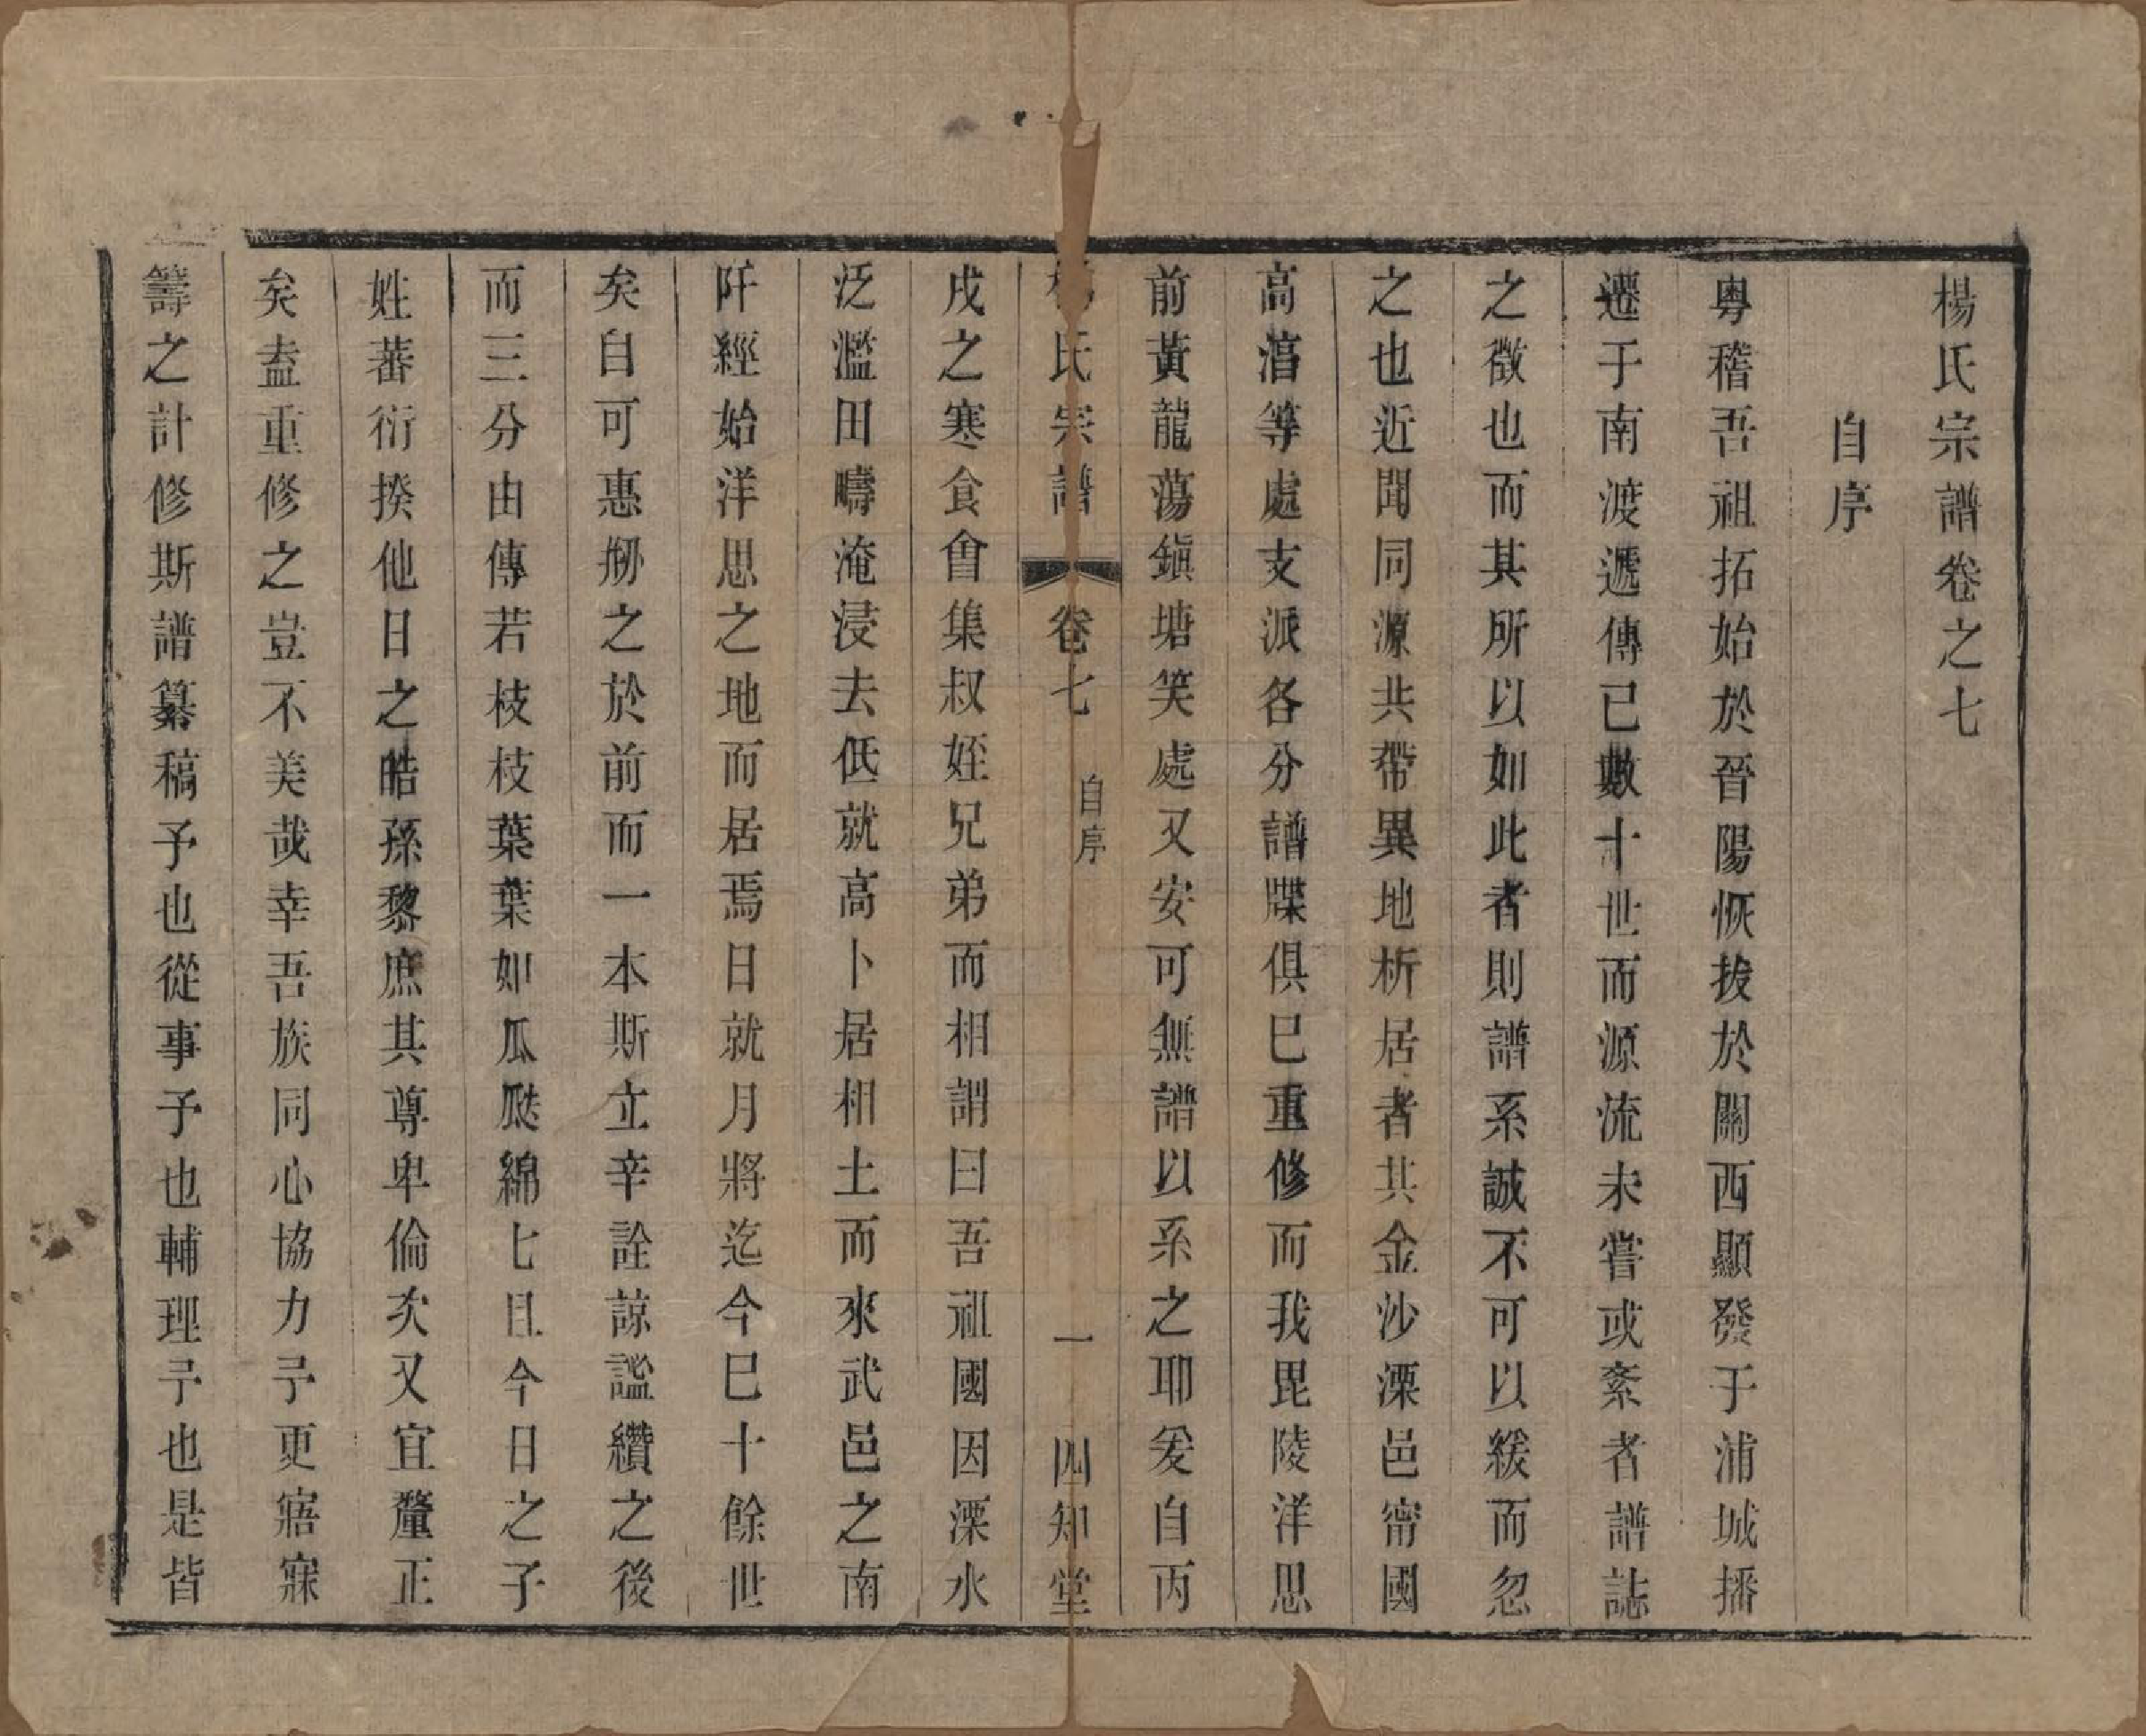 楊氏宗譜卷之七
自序
粵稽吾祖拓始於晉陽恢拔於關西顯發于浦城播
遷于南渡遞傳已數十世而源流未嘗或紊者譜誌
之徵也而其所以如此者則譜系誠不可以緩而忽
之也近聞同源共帶異地析居者共金沙溧邑甯國
高湻等處支派各分譜牒俱巳重修而我毘陵洋思
前黃龍蕩鎮塘笑處又安可無譜以系之耶爰自丙
楊氏宗譜 卷七 自序 一 四知堂
戌之寒食會集叔姪兄弟而相謂曰吾祖國因溧水
泛濫田疇淹浸去低就高卜居相土而來武邑之南
阡經始洋思之地而居焉日就月將迄今巳十餘世
矣自可惠刱之於前而一本斯立辛詮諒謐纘之後
而三分由傳若枝枝葉葉如瓜瓞綿七且今日之子
姓蕃衍揆他日之皓孫黎庶其尊卑倫次又宜釐正
矣盍重修之豈不美哉幸吾族同心協力予更寤寐
籌之計修斯譜纂稿予也從事予也輔理予也是皆